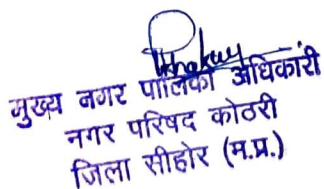 मुख्य नगर पालिका अधिकारी
नगर परिषद कोठरी
जिला सीहोर (म.प्र.)